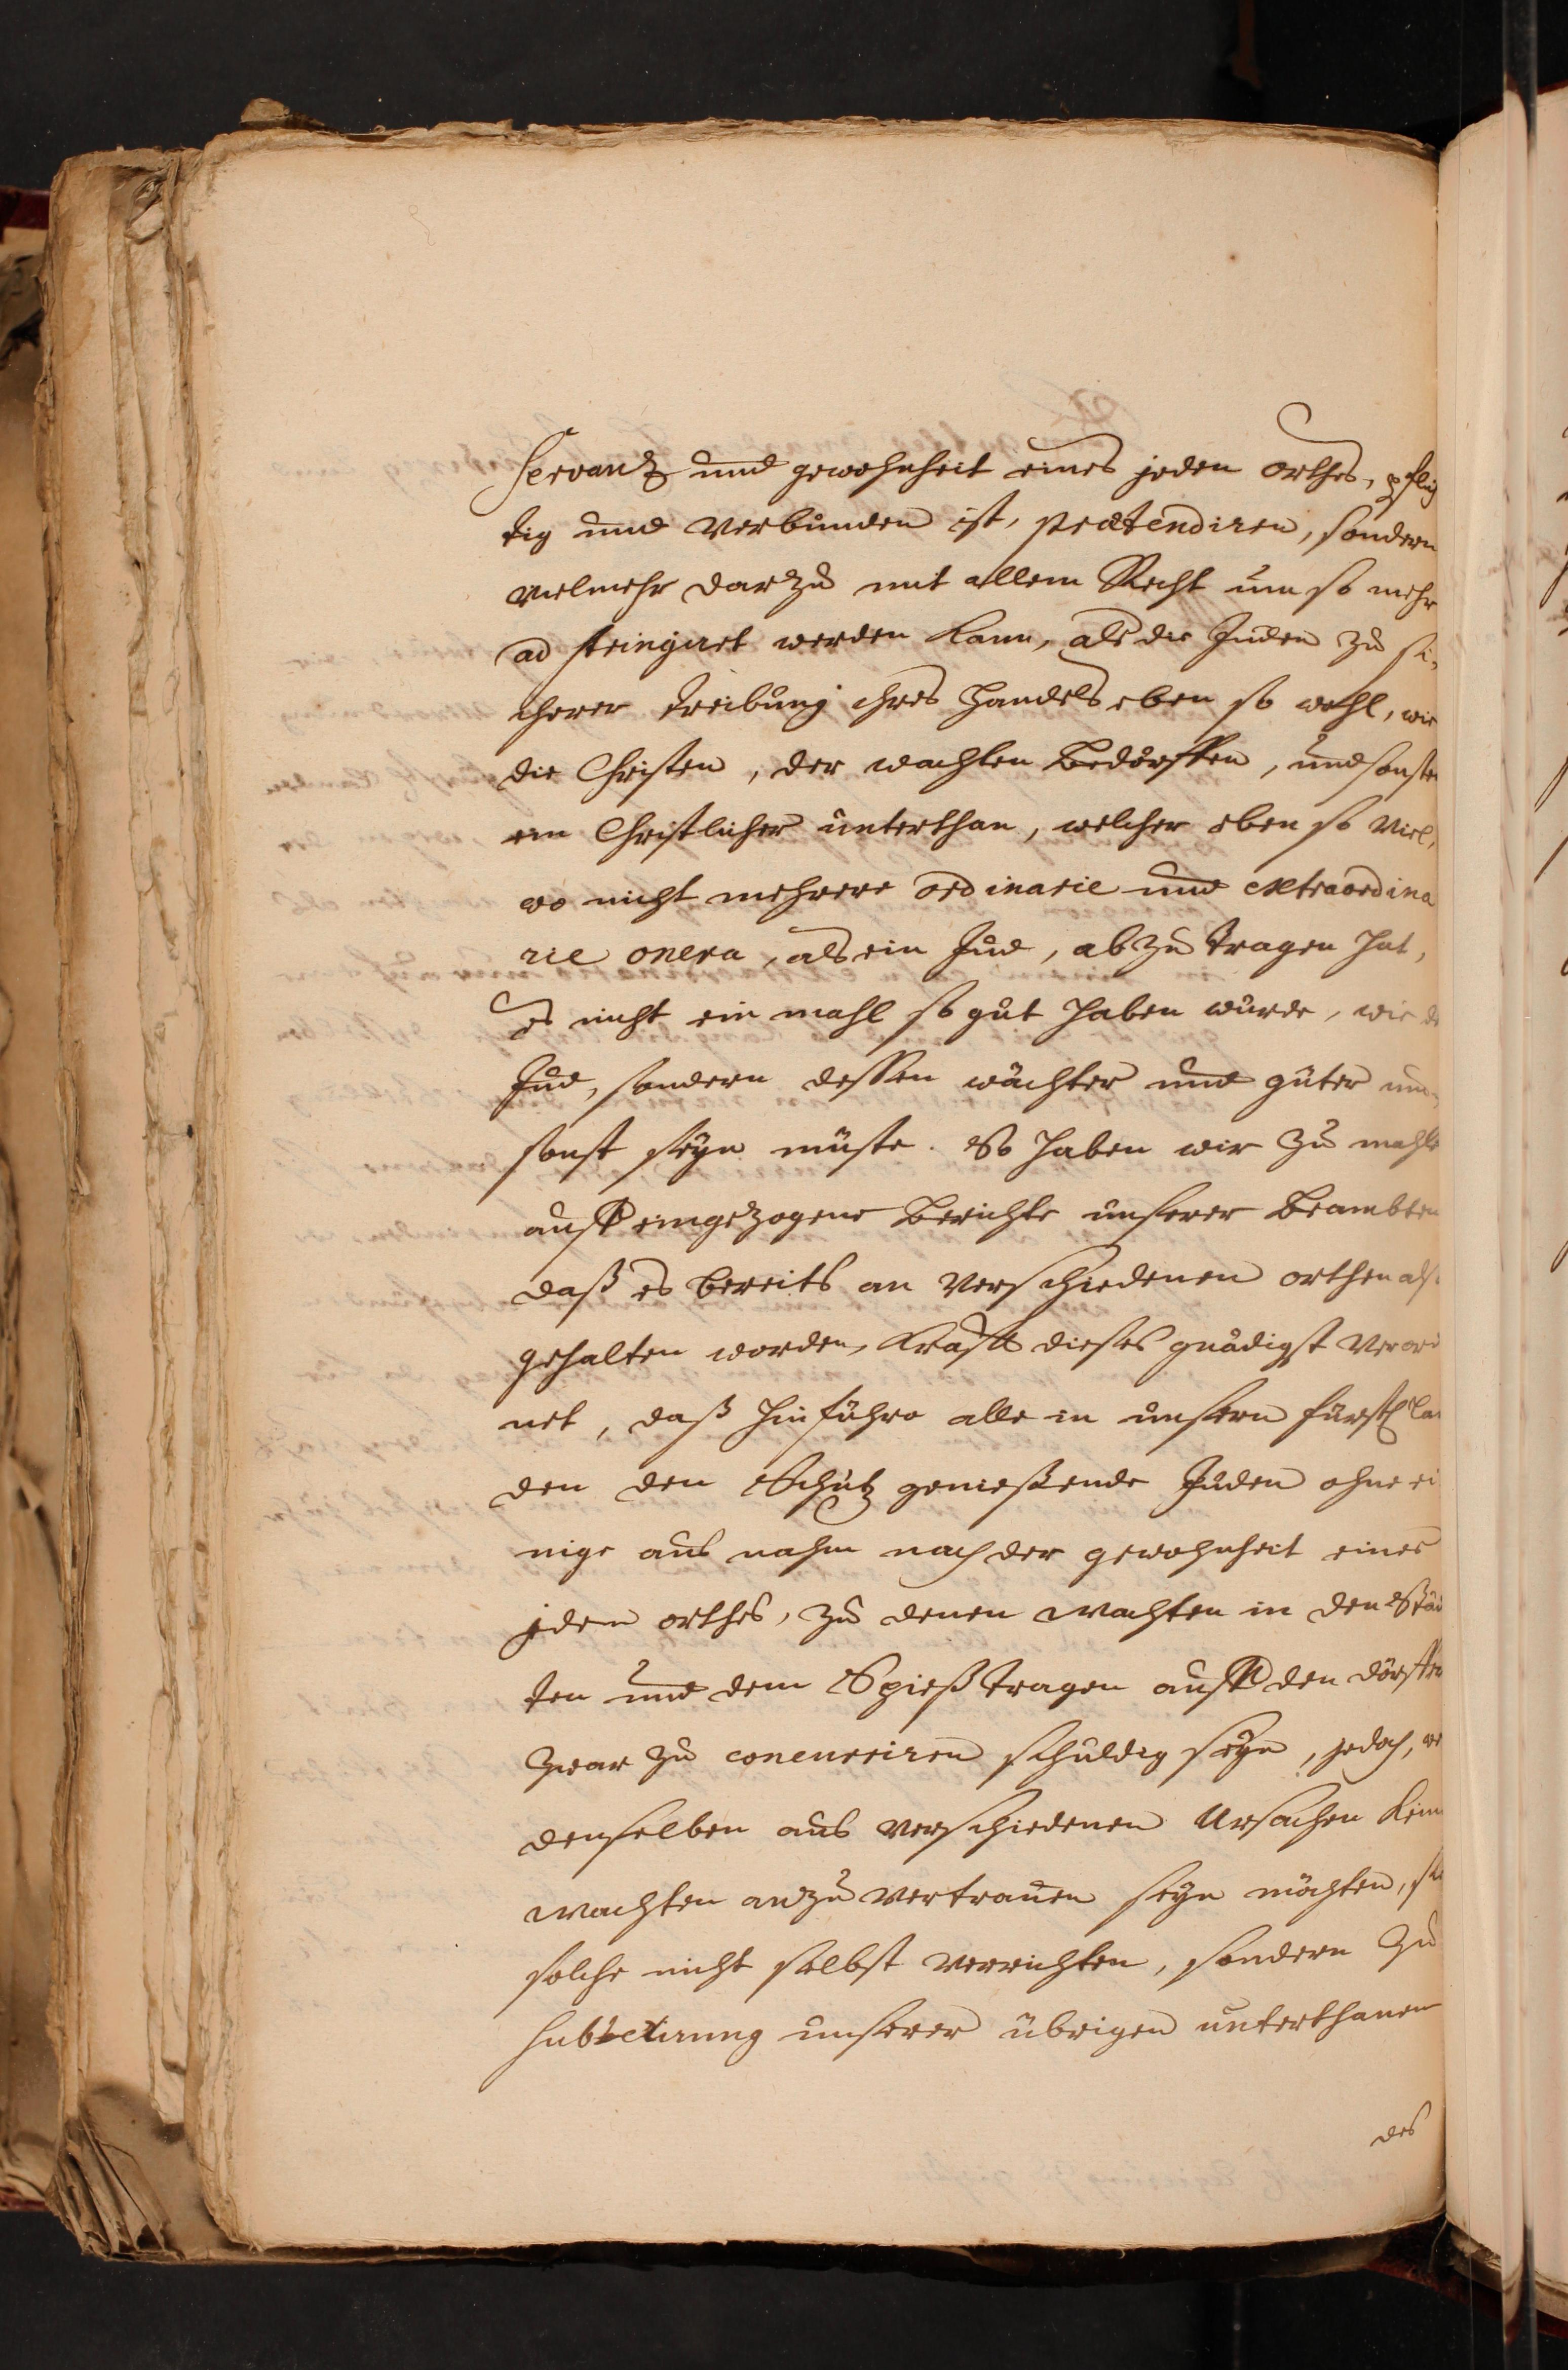 servantz und gewohnheit eines jeden orthes, pflich
tig und verbunden ist, prætendiren, sondern
vielmehr darzu mit allem Recht um so mehr
ad stringiret werden kann, als die Juden zu si-
cherer treibung ihres Handels eben so wohl, wie
die Christen, der wachten bedörffen, und sonsten
ein Christlicher unterthan, welcher eben so viel,
wo nicht mehrere ordinarie und extraordina
rie onera, als ein Jud, abzutragen hat,
es nicht ein mahl so gut haben würde, wie de
Jud, sondern dessen wächter und hüter um-
sonst seyn müste. So haben wir zu mahle
auff eingezogene Berichte unserer Beambten
daß es bereits an verschiedenen orthen also
gehalten worden, Krafft dieses gnädigst verord
net, daß hinführo alle in unsern fürstl Lan
den den Schutz genießende Juden ohne ei
nige aus nahm nach der gewohnheit eines
jeden orthes, zu denen wachten in den Städ
ten und dem Spießtragen auff den dörffern
zwar zu concurriren schuldig seyn, jedoch, we
denselben aus verschiedenen Ursachen keine
wachten anzuvertrauen seyn möchten, sie
solche nicht selbst verrichten, sondern zu
sublevirung unserer übrigen unterthanen
des